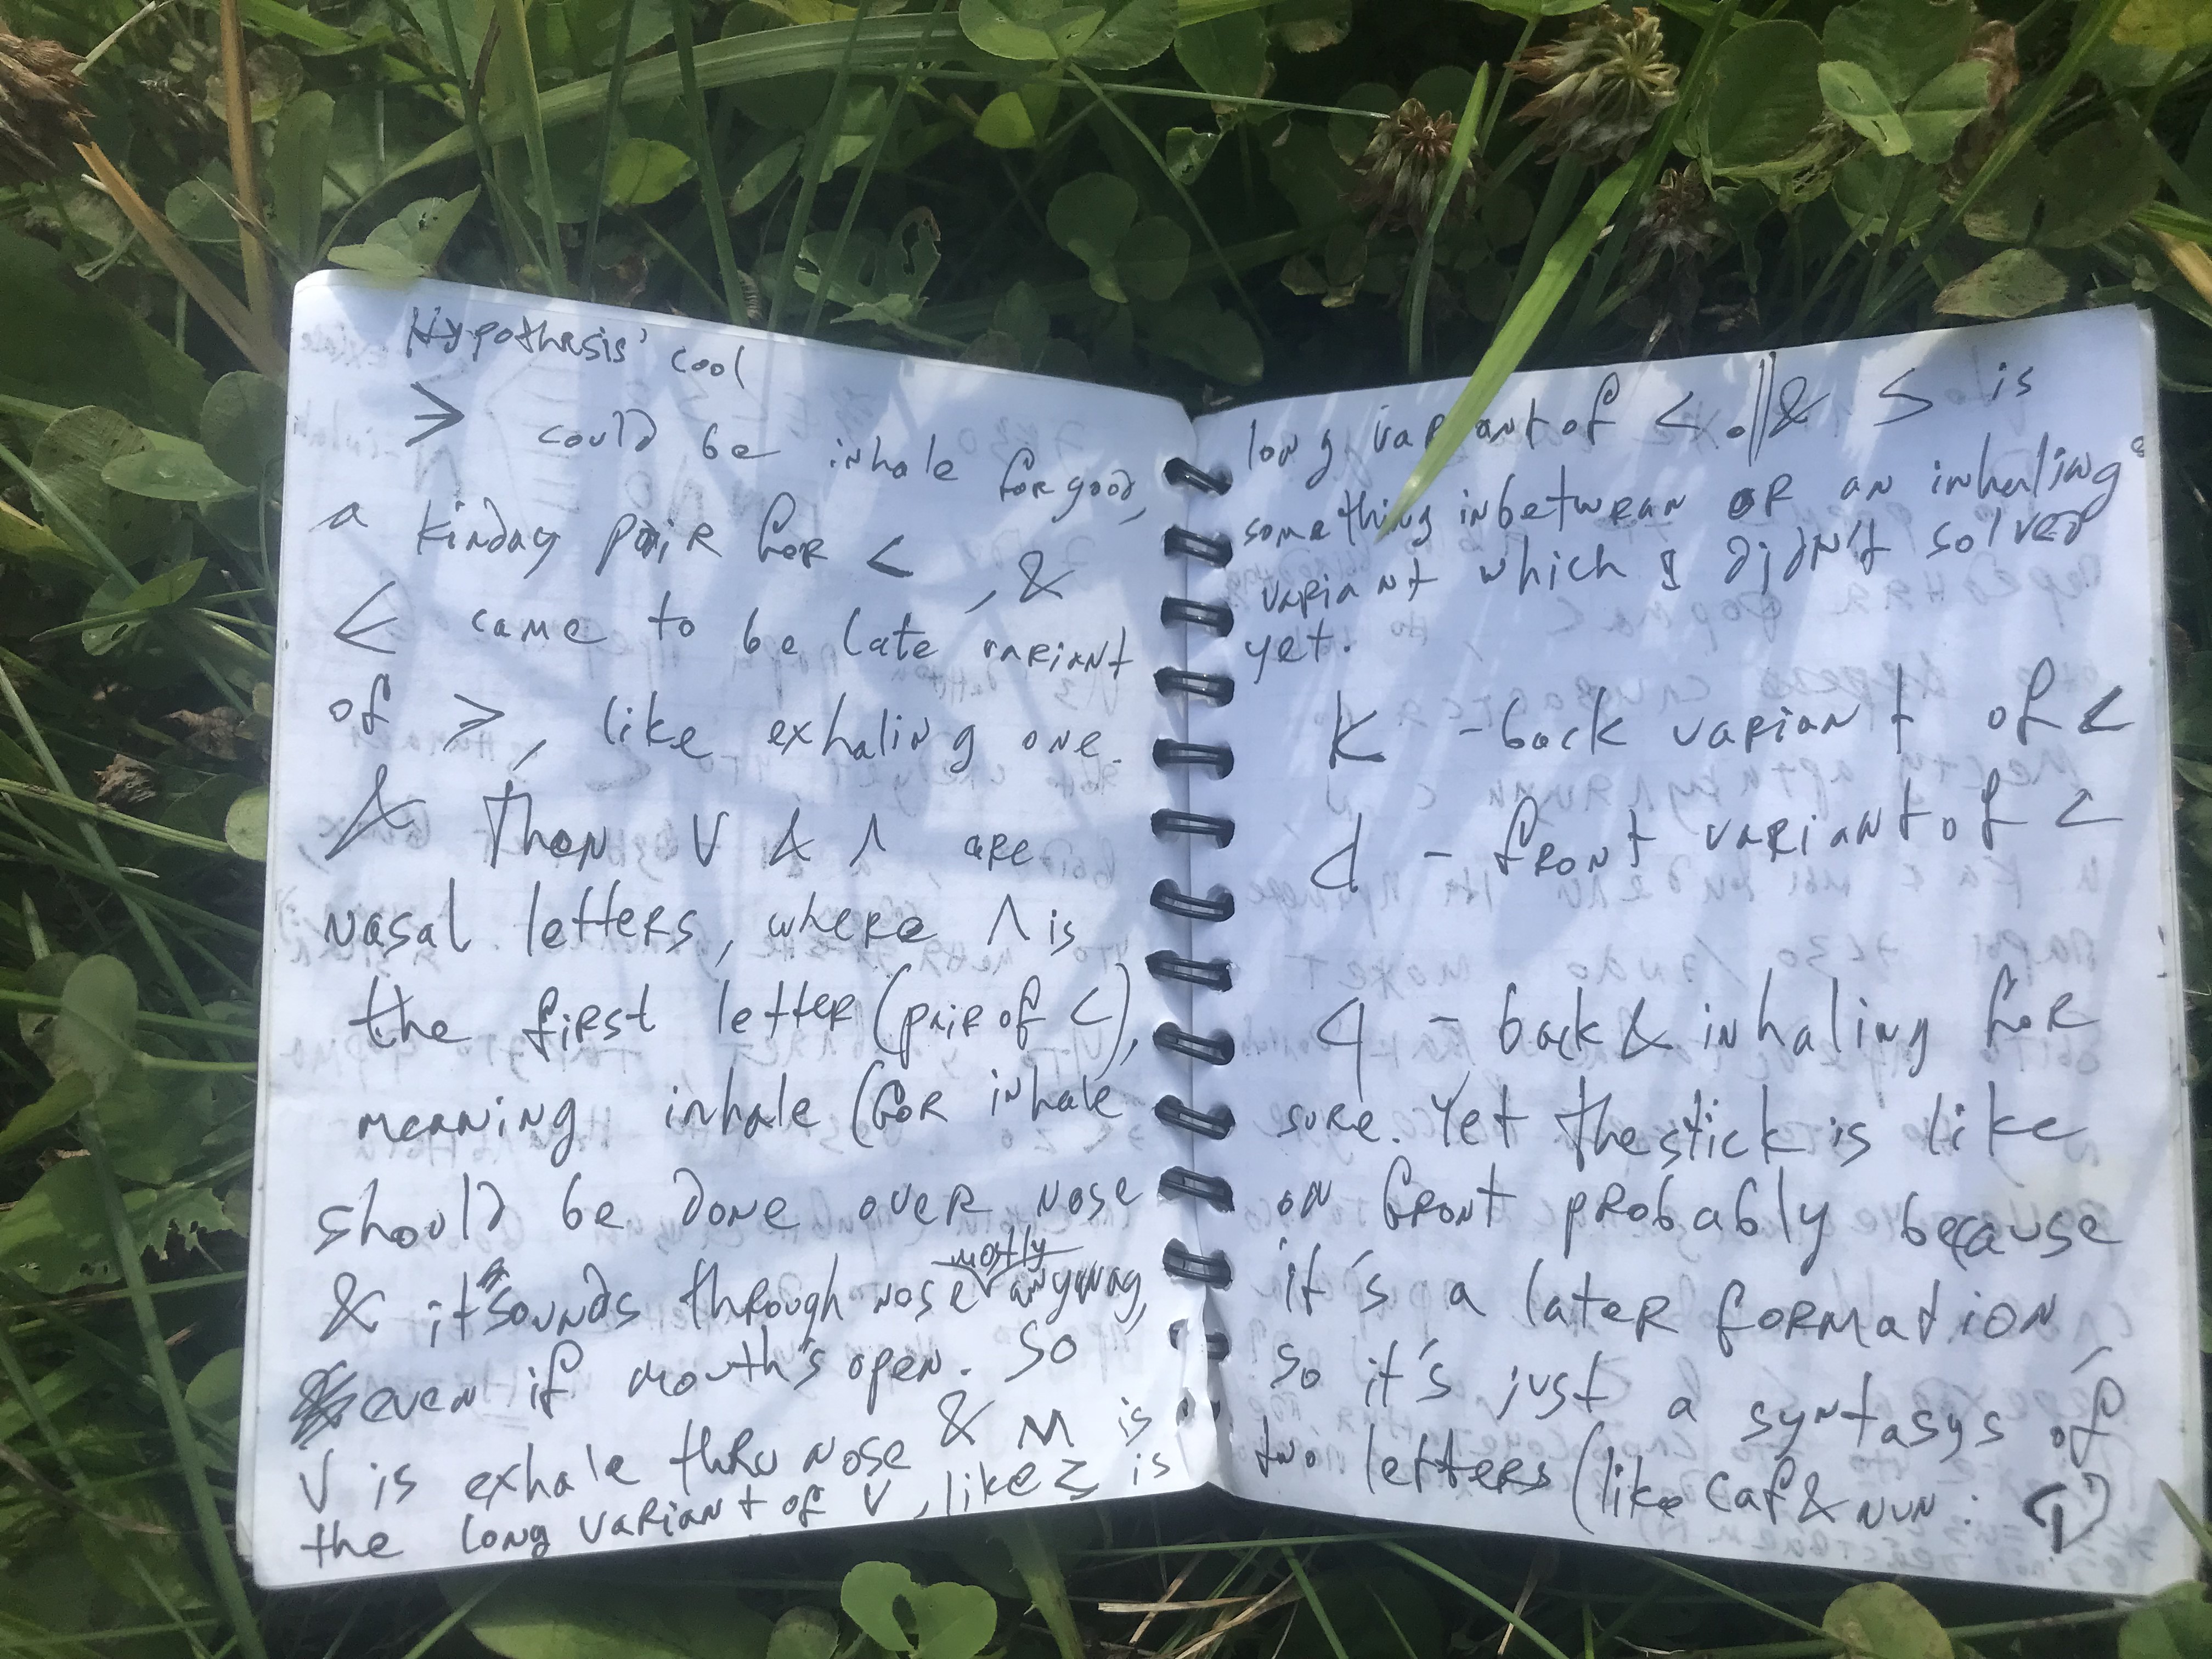 Hypothesis' cool
→ could be inhale for good,
a kinday pair for <, &
< came to be late meint
of >, like exhaling one.
& Then V & Λ are
nasal letters, where Λ is
the first letter (pair of <),
meaning inhale (for inhale
should be done over nose
& it sounds through nose mostly anyway,
even if mouth's open. So
V is exhale thru nose & M is
the long variant of V, like Σ is
long variant of < & S is
something inbetween or an inhaling
variant which I didn't solved
yet.
K - back variant of <
d - front variant of <
q - back & inhaling for
sure. Yet the stick is like
on front probably because
it's a later formation,
so it's just a syntasys of
two letters (like caf & nun in